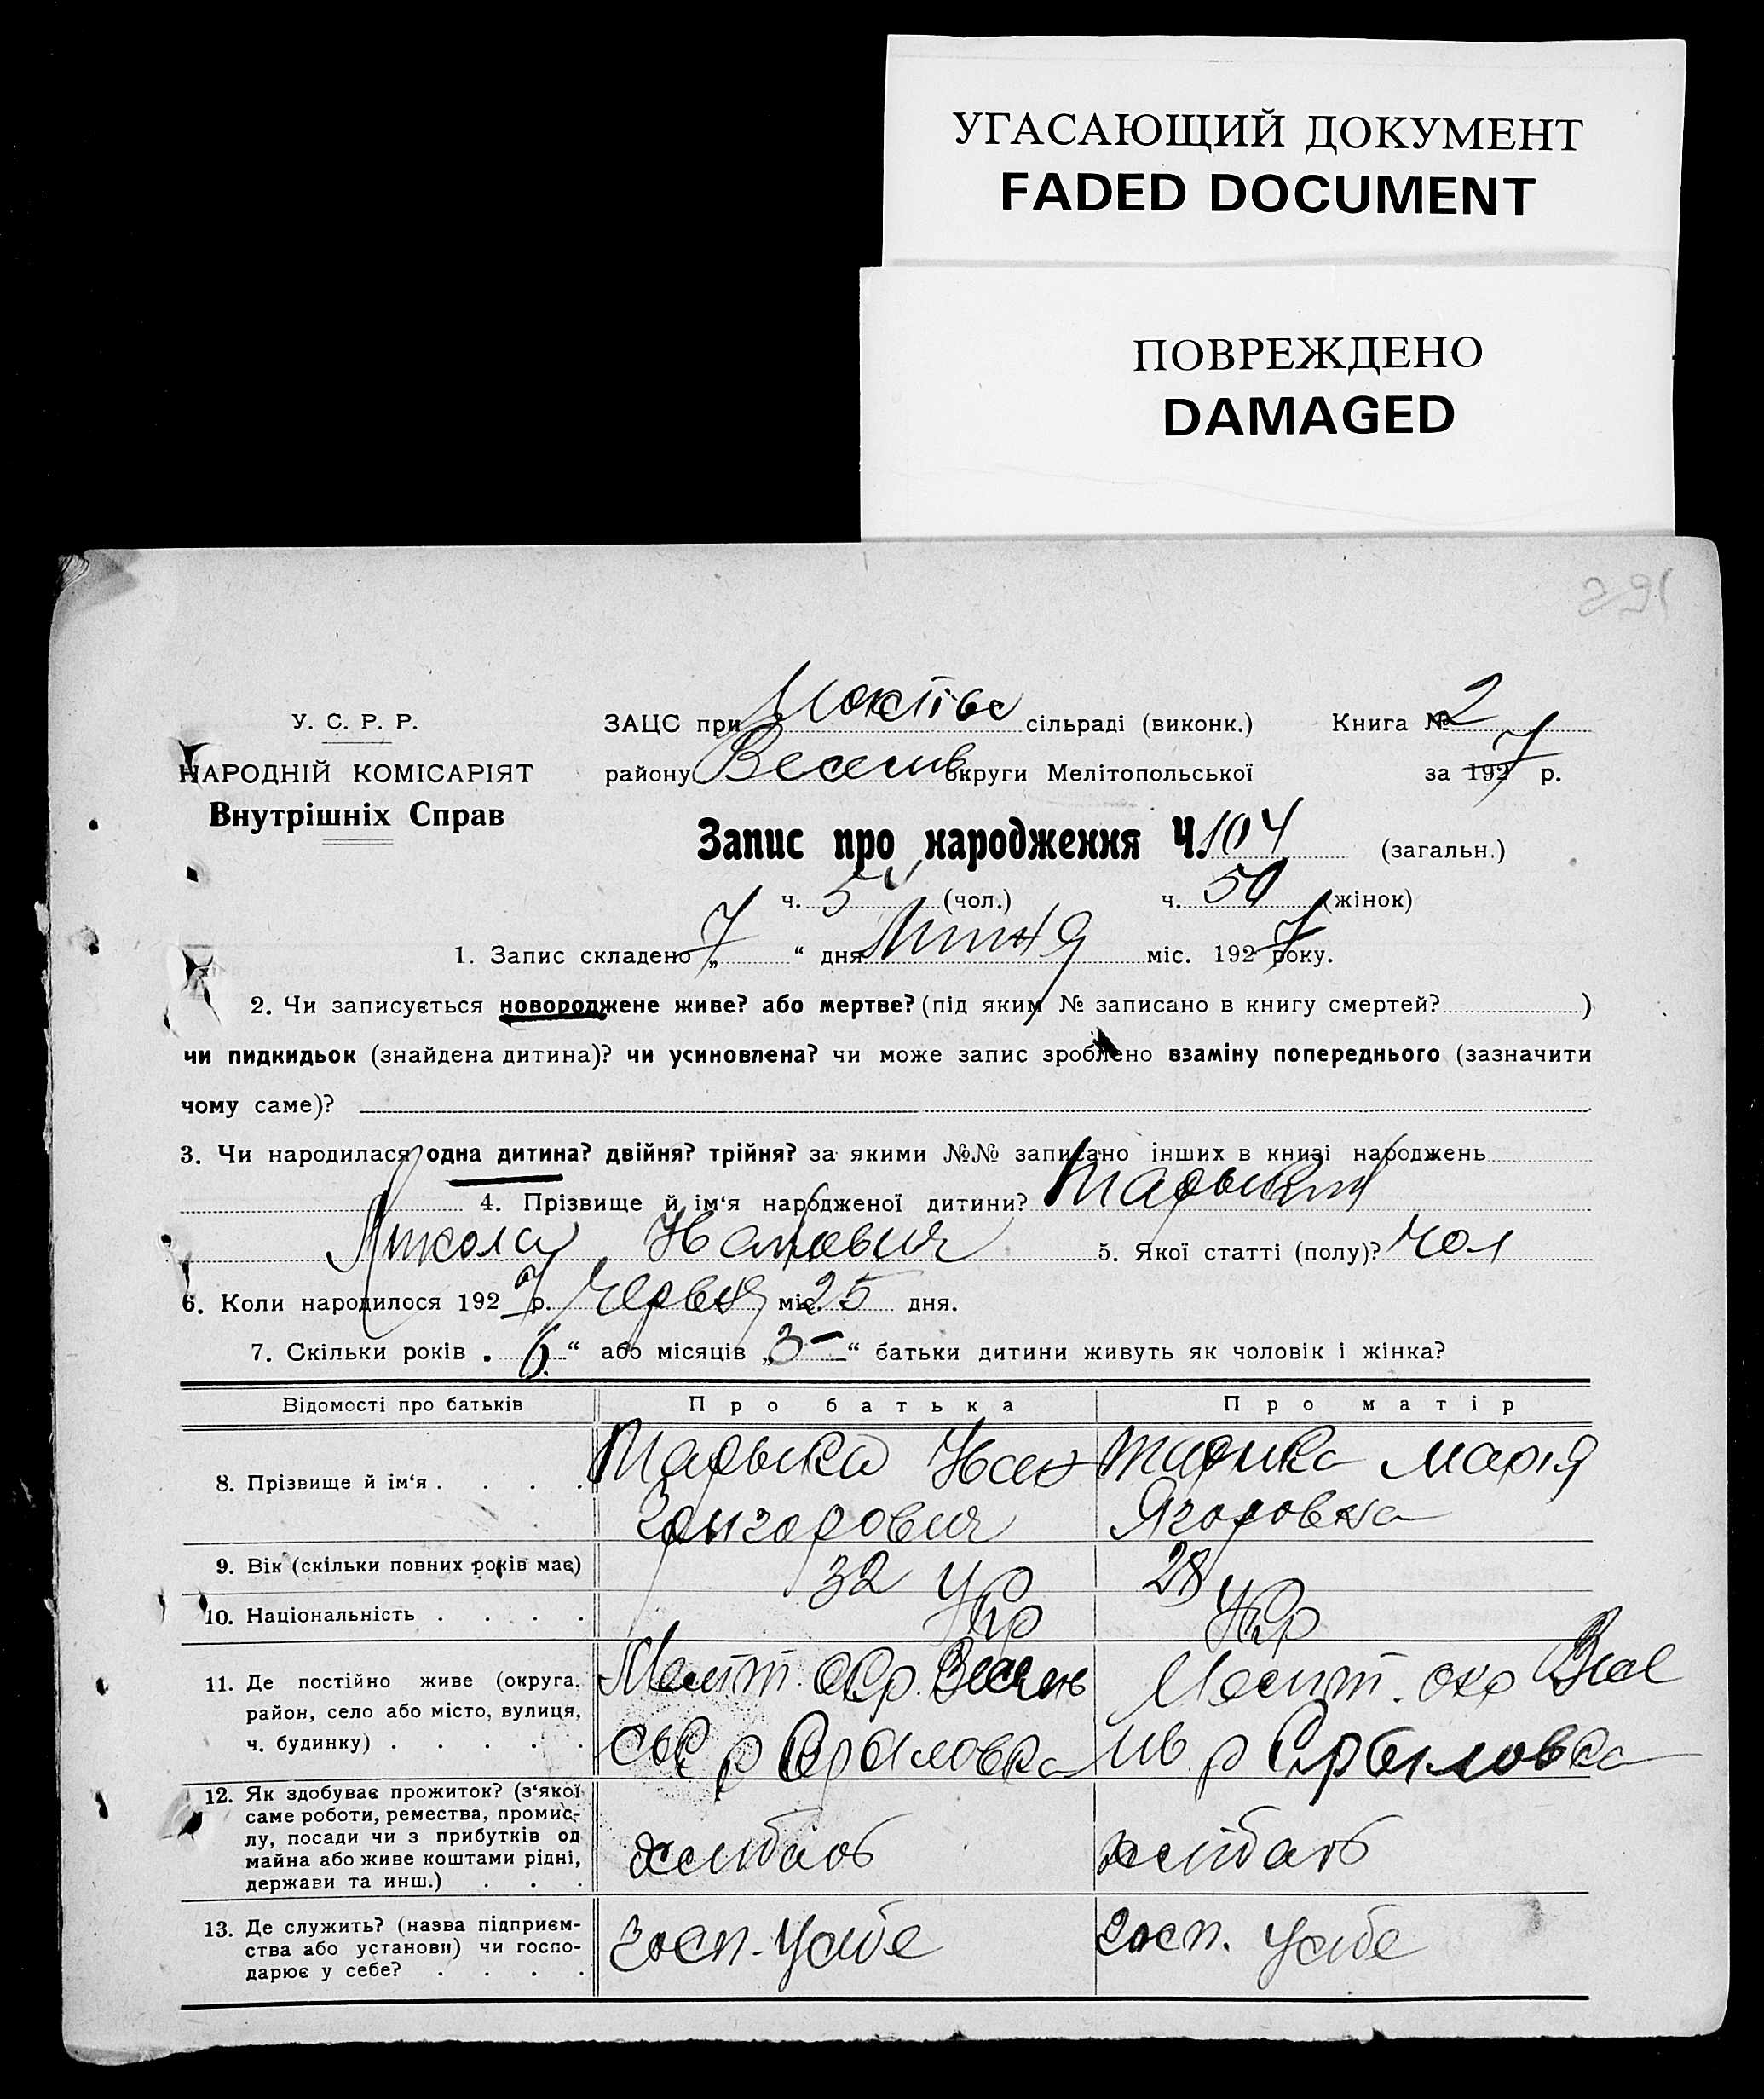 УГАСАЮЩИЙ ДОКУМЕНТ
FADED DOCUMENT
ПОВРЕЖДЕНО
DAMAGED
291
У. С. Р. Р.
НАРОДНІЙ КОМІСАРІЯТ
Внутрішніх Справ
ЗАЦС при сільраді (виконк.) Книга № 2
району Веселів округи Мелітопольської за 1927 р.
Запис про народження Ч. 104 (загальн.)
ч. (чол.) ч. 50 (жінок)
1. Запис складено „ 7 “ дня Липня міс. 1927 року.
2. Чи записується новороджене живе? або мертве? (під яким № записано в книгу смертей? )
чи пидкидьок (знайдена дитина)? чи усиновлена? чи може запис зроблено взаміну попереднього (зазначити
чому саме)?
3. Чи народилася одна дитина? двійня? трійня? за якими №№ записано інших в книзі народжень
4. Прізвище й ім‘я народженої дитини?
Микола Иванович 5. Якої статті (полу)? чол
6. Коли народилося 1927 р. Червня міс. 25 дня.
7. Скільки років „ 6 “ або місяців „ 3 “ батьки дитини живуть як чоловік і жінка?
Відомості про батьків Про батька Про матір
8. Прізвище й ім‘я . . . . Иван Мария
Григорович Ягоровна
9. Вік (скільки повних років має) 32 28
10. Національність . . . . Укр Укр
11. Де постійно живе (округа, Мелит. окр. Мелит. окр
район, село або місто, вулиця,
ч. будинку) . . . . .
12. Як здобуває прожиток? (з‘якої
саме роботи, ремества, промис-
лу, посади чи з прибутків од
майна або живе коштами рідні,
держави та инш.) . . . хлибороб хлибороб
13. Де служить? (назва підприєм-
ства або установи) чи госпо-
дарює у себе? . . . . госп. у себе госп. у себе